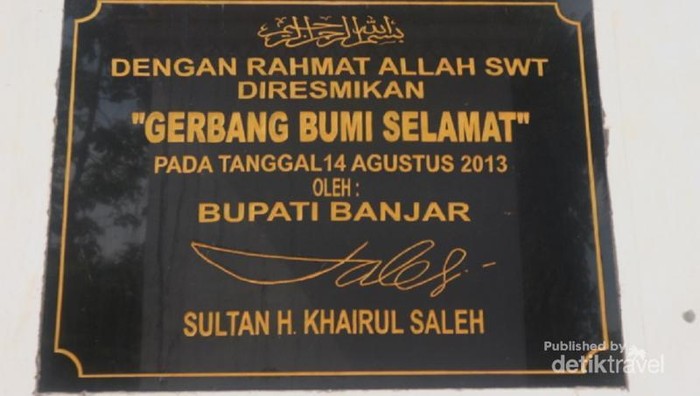 بسم الله الرحمن الرحيم
DENGAN RAHMAT ALLAH SWT
DIRESMIKAN
"GERBANG BUMI SELAMAT"
PADA TANGGAL 14 AGUSTUS 2013
OLEH :
BUPATI BANJAR
Saleh
SULTAN H. KHAIRUL SALEH
Published by
detiktravel